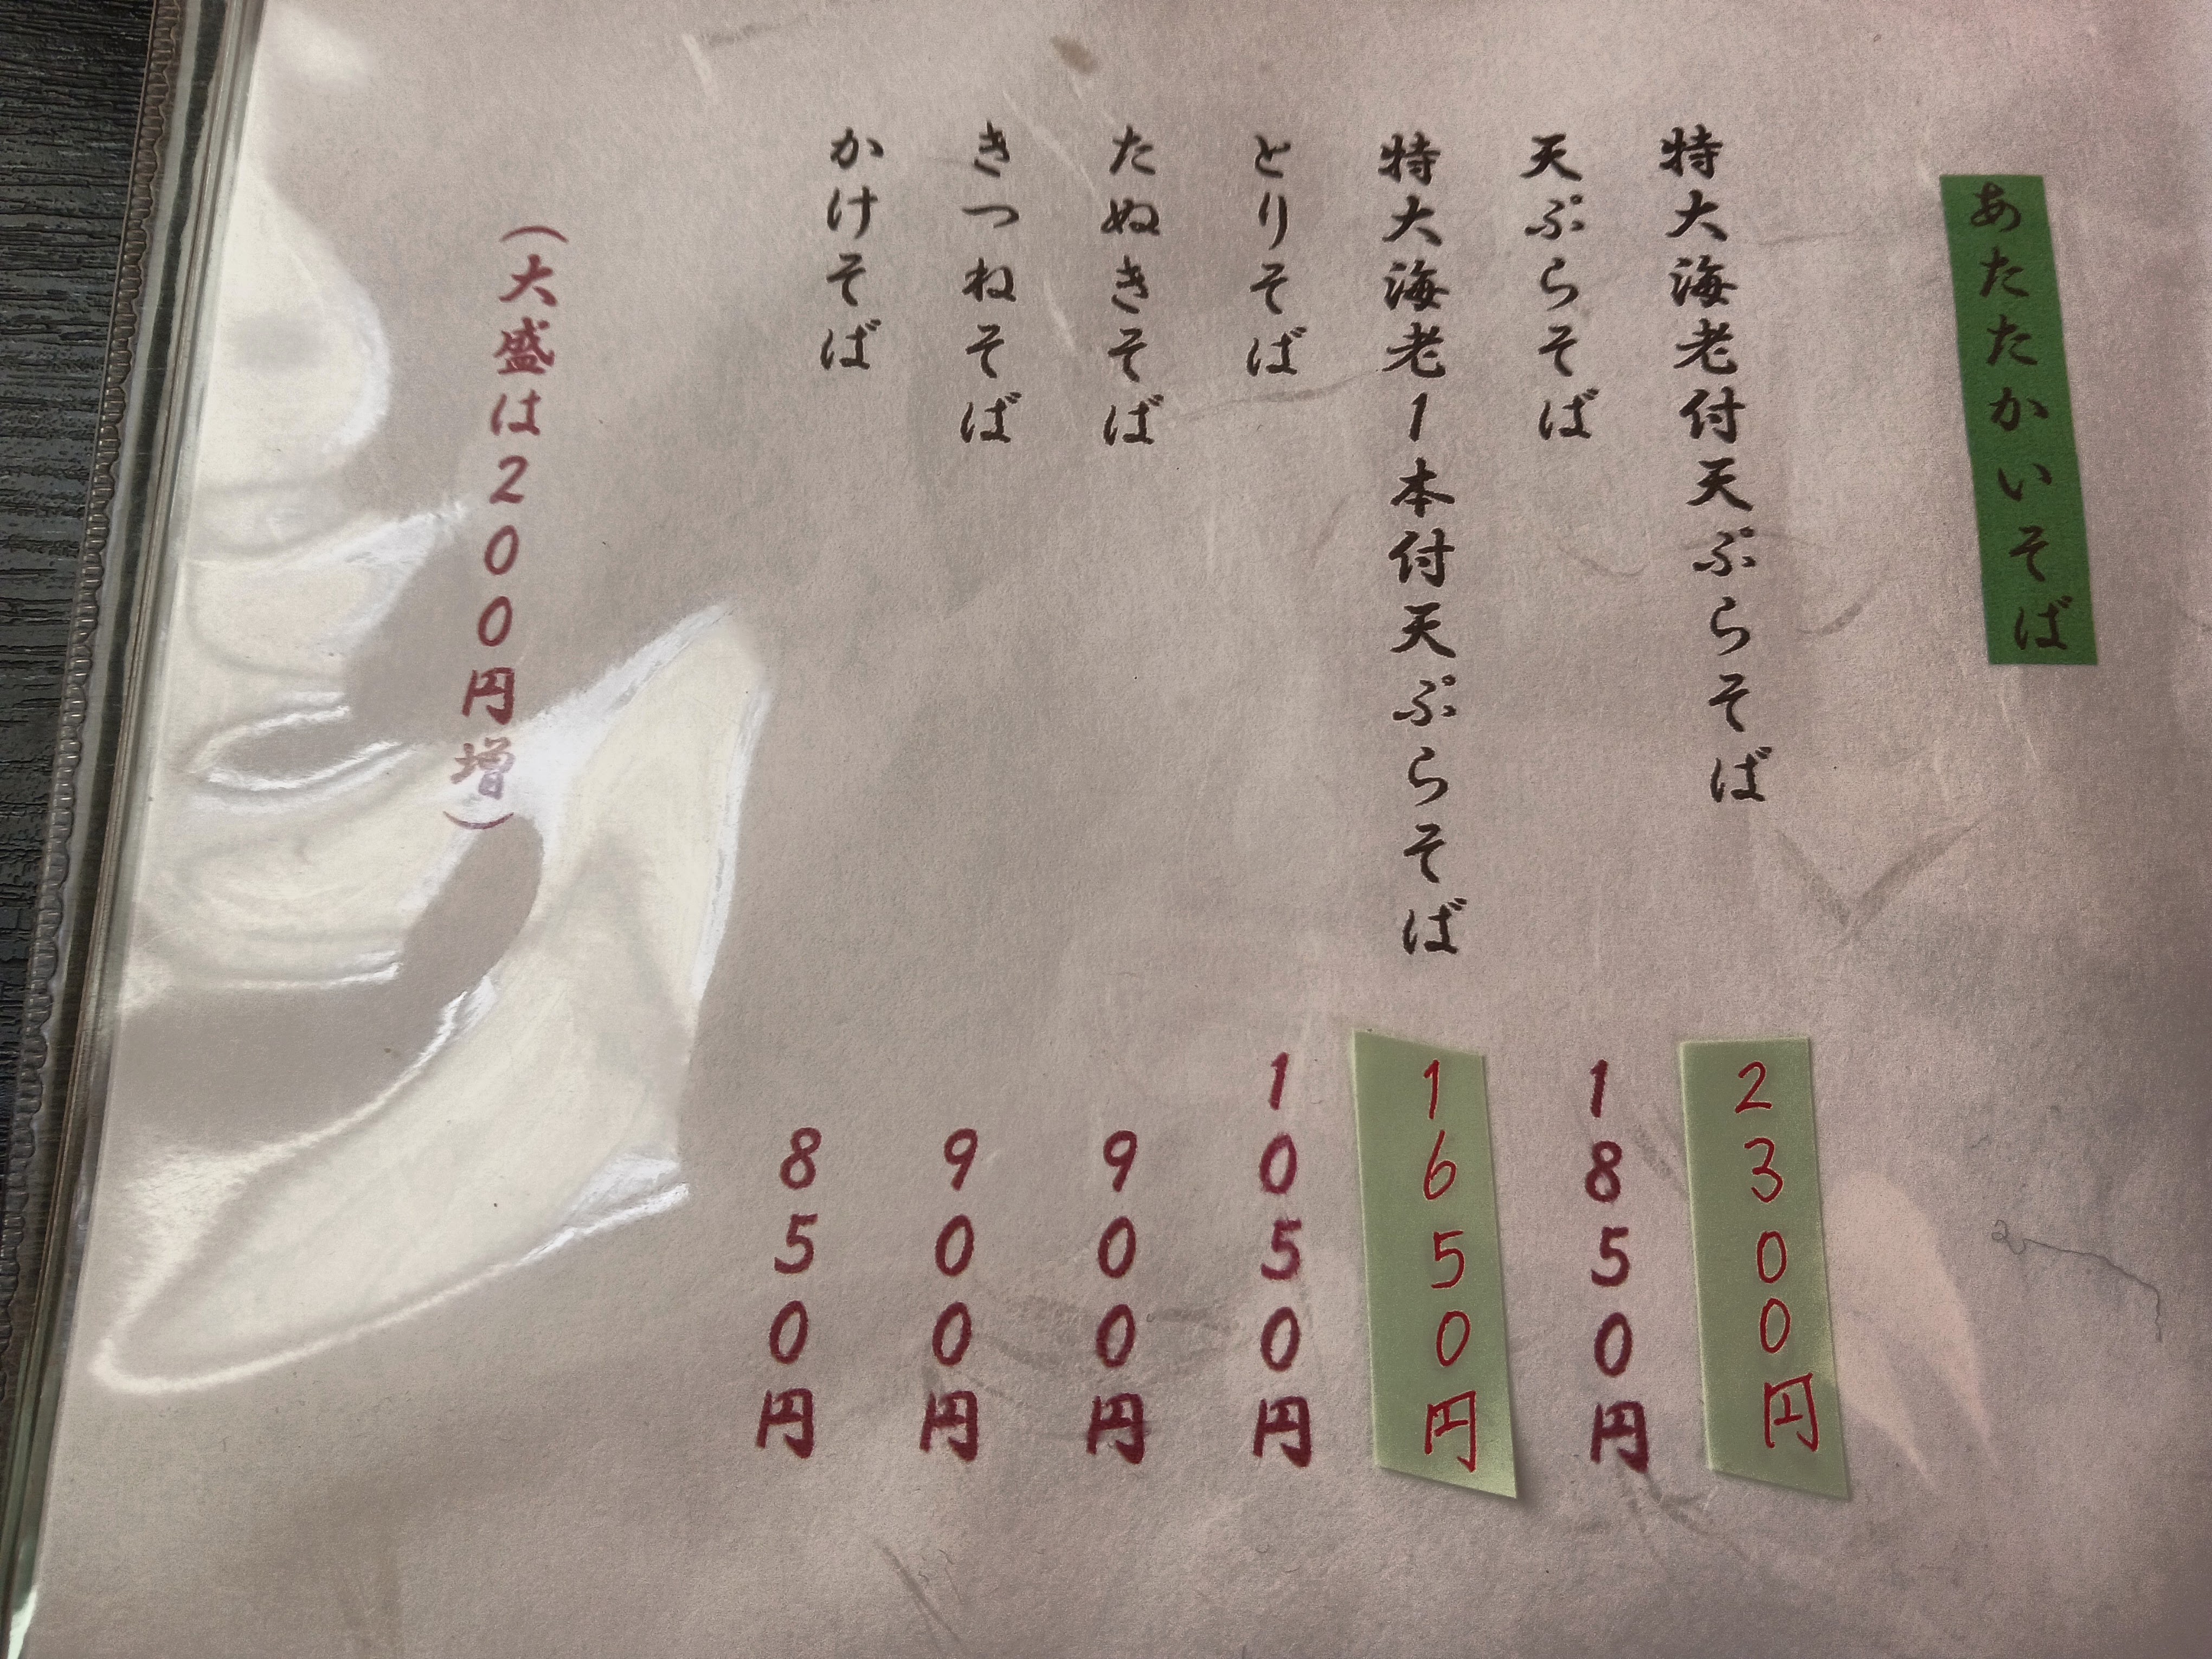 あたたかいそば
特大海老付天ぷらそば 2300円
天ぷらそば 1850円
特大海老1本付天ぷらそば 1650円
とりそば 1050円
たぬきそば 900円
きつねそば 900円
かけそば 850円
(大盛は200円増)